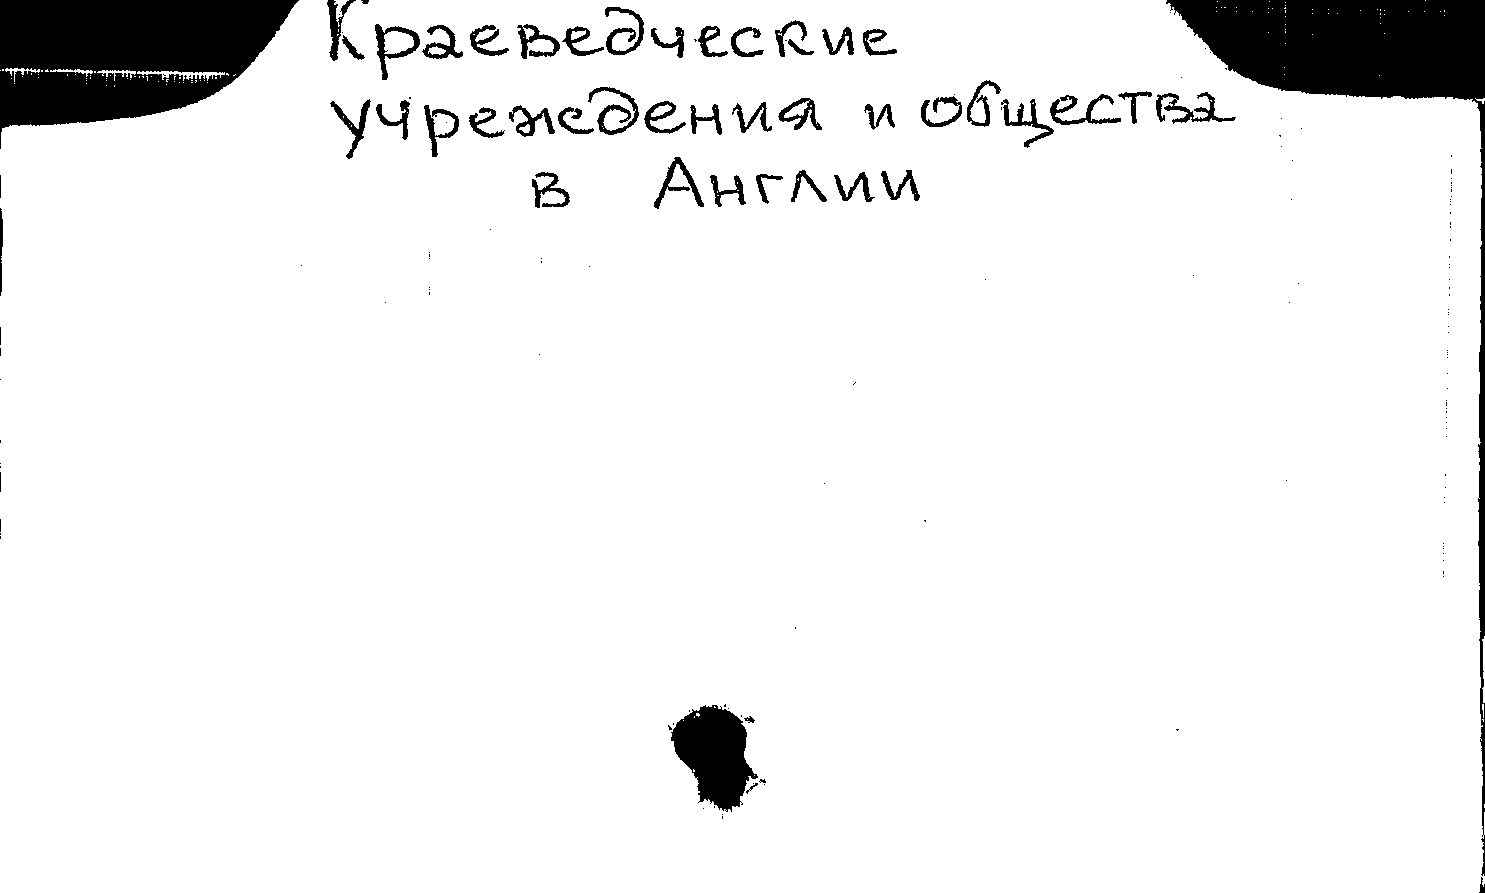 Краеведческие
учреждения и общества
в Англии